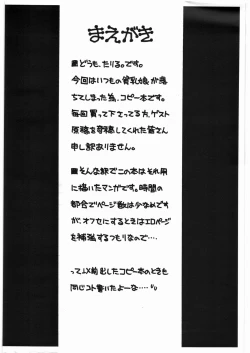 まえがき
■どうも、たりる。です。
今回はいつもの貧乳娘が落
ちてしまった為、コピー本です。
毎回買って下さってる方、ゲスト
原稿を寄稿してくれた皆さん
申し訳ありません。
■そんな訳でこの本はそれ用
に描いたマンガです。時間の
都合でページ数は少なめです
が、オフセにするときはエロページ
を補充するつもりなので‥‥
って以前出したコピー本のときも
同じコト書いたよーな‥‥